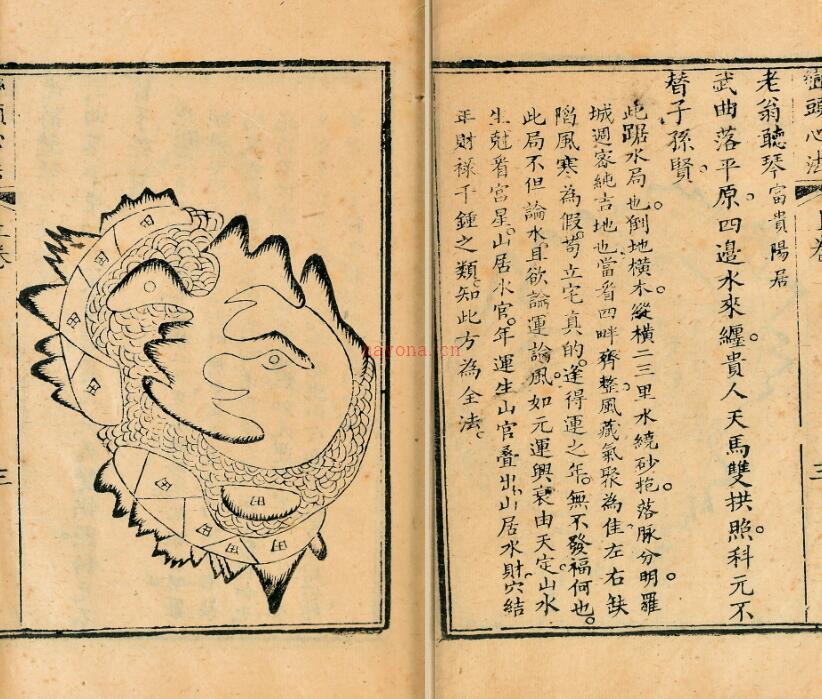 巒頭心法
上卷
三
老翁聽琴 富貴陽居
武曲落平原。四邊水來纏。貴人天馬雙拱照。科元不
替子孫賢。
此踞水局也。倒地橫木。縱橫二三里水繞砂抱。落脉分明。羅
城週密純吉地也。當看四畔齊整。風藏氣聚為佳。左右缺
陷風寒為假。苟立宅真的。逢得運之年。無不發福何也。
此局不但論水且欲論運論風。如元運興衰由天定山水
生尅看宮星。山居水官。年運生山官疊出。山居水財。穴結
年財祿千鍾之類。知此方為全法。
田
田
田
田
田
田
田
田
田
三
nayona.cn